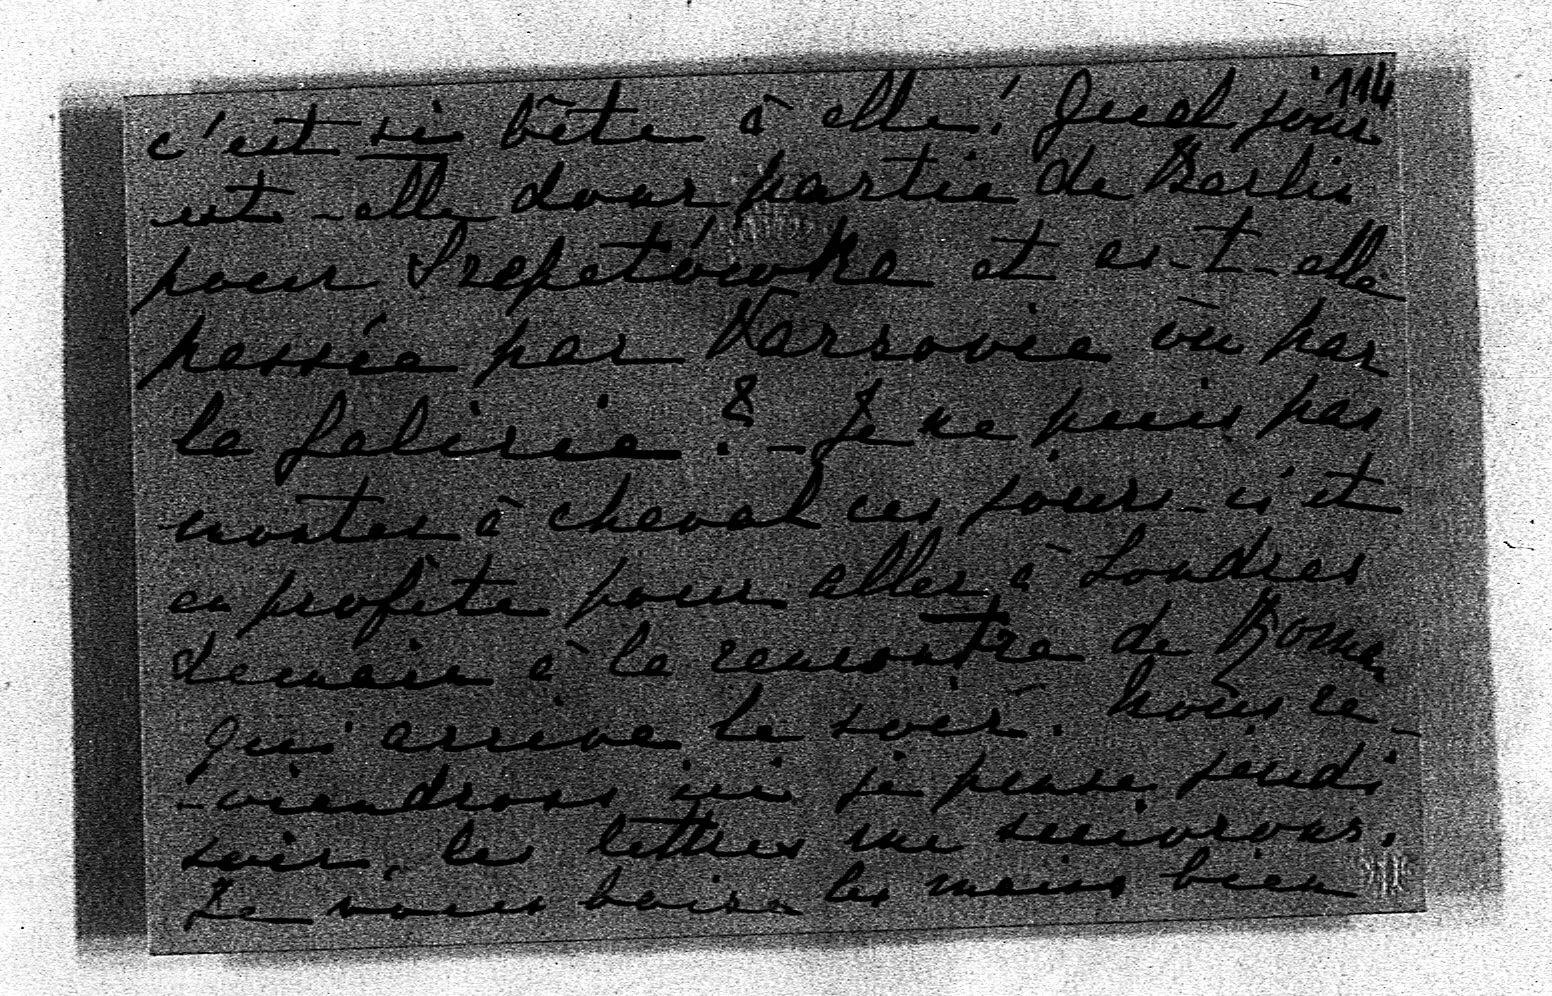 114
c'est si bête à elle! Quel jour
est-elle donc partie de Berlin
pour Szepetówka et es-t-elle
passée par Varsovie ou par
la Galicie? - Je ne puis pas
monter à cheval ces jours-ci et
en profite pour aller à Londres
demain à la rencontre de Roma
qui arrive le soir. Nous re-
-viendrons ici je pense jeudi
soir, les lettres me suivront.
Je vous baise les mains bien